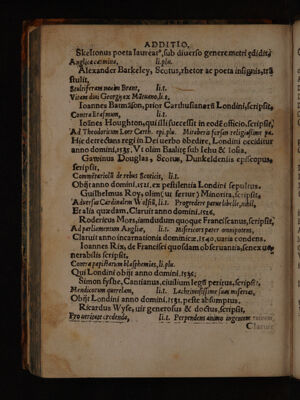 ADDITIO.
Skeltonus poeta laureatꝰ, sub diuerso genere metri ędidit,
Anglica carmina, li.plu.
Alexander Barkeley, Scotus, rhetor ac poeta insignis, trā
stulit,
Stultiferam nauim Brant, li.1.
Vitam diui Georgij ex Mātuano, li.1.
Ioannes Batmāson, prior Carthusianorū Londini, scripsit,
Contra Erasmum, li.1.
Ioānes Houghton, qui illi successit in eodē officio, scripsit,
Ad Theodoricum Lorr Carth. epi.plu. Miraberis forsan religiosissime pa.
Hic detrectans regi in Dei uerbo obedire, Londini occiditur
anno domini, 1535. Vt olim Baalitę sub Iehu & Iosia.
Gawinus Douglas, Scotus, Dunkeldensis episcopus,
scripsit,
Commētariolū de rebus Scoticis, li.1.
Obijt anno domini, 1521. ex pestilentia Londini sepultus.
Guilhelmus Roy, olim (ut fertur) Minorita, scripsit,
Aduersus Cardinalem Wolsiū, li.1. Progredere parue libelle, nihil,
Et alia quædam. Claruit anno domini, 1526.
Rodericus Mors, iamdudum quoque Franciscanus, scripsit,
Ad parliamentum Angliæ, li.1. Misericors pater omnipotens,
Claruit anno incarnationis dominicæ, 1540. uaria condens.
Ioannes Rix, de Franciscī quosdam obseruantis, senex ue
nerabilis scripsit,
Contra papistarum blasphemias, li.plu.
Qui Londini obijt anno domini, 1536.
Simon fyshe, Cantianus, ciuilium legū peritus, scripsit,
Mendicorum querelam, li.1. Lachrimosissime suas miserias,
Obijt Londini anno domini, 1531. peste absumptus.
Ricardus Wyse, uir generosus & doctus, scripsit,
Pro ueritate credenda, li.1. Perpendens animo ingentem
Claruit